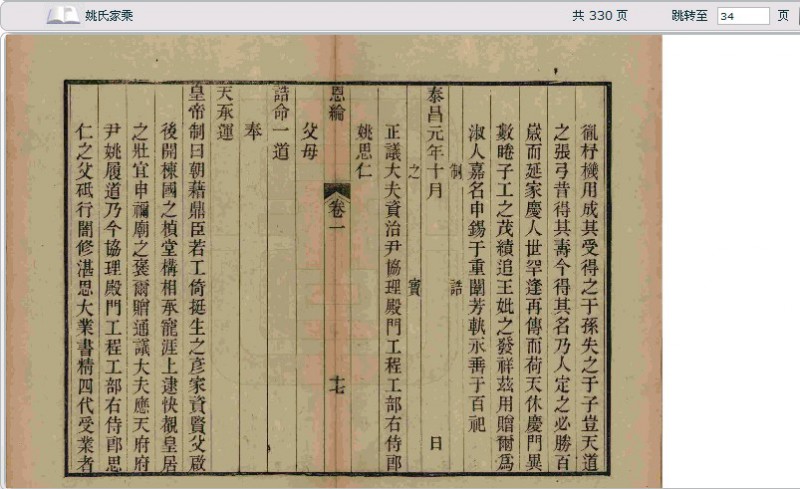 姚氏家乘
共 330 页
跳转至 34 页
胤杼機用成其受得之于孫失之于子豈天道
之張弓昔得其壽今得其名乃人定之必勝百
歲而延家慶人世罕逢再傳而荷天休慶門異
數睠子工之茂績追王妣之發祥茲用贈爾爲
淑人嘉名申錫于重闈芳軼永垂于百祀
制 誥
泰昌元年十月 日
之 寶
正議大夫資治尹協理殿門工程工部右侍郎
姚思仁
恩綸 卷一 十七
父母
誥命一道
奉
天承運
皇帝制曰朝藉鼎臣若工倚挺生之彥家資賢父啟
後開棟國之楨堂構相承寵涯上逮快覩皇居
之壯宜申禰廟之褒爾贈通議大夫應天府府
尹姚履道乃今協理殿門工程工部右侍郎思
仁之父砥行闇修湛思大業書精四代受業者